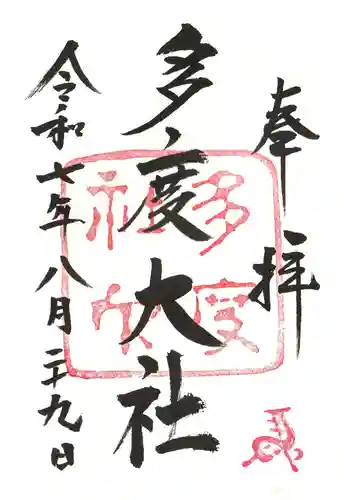 奉拝
多度大社
多度
大社
令和七年八月二十九日